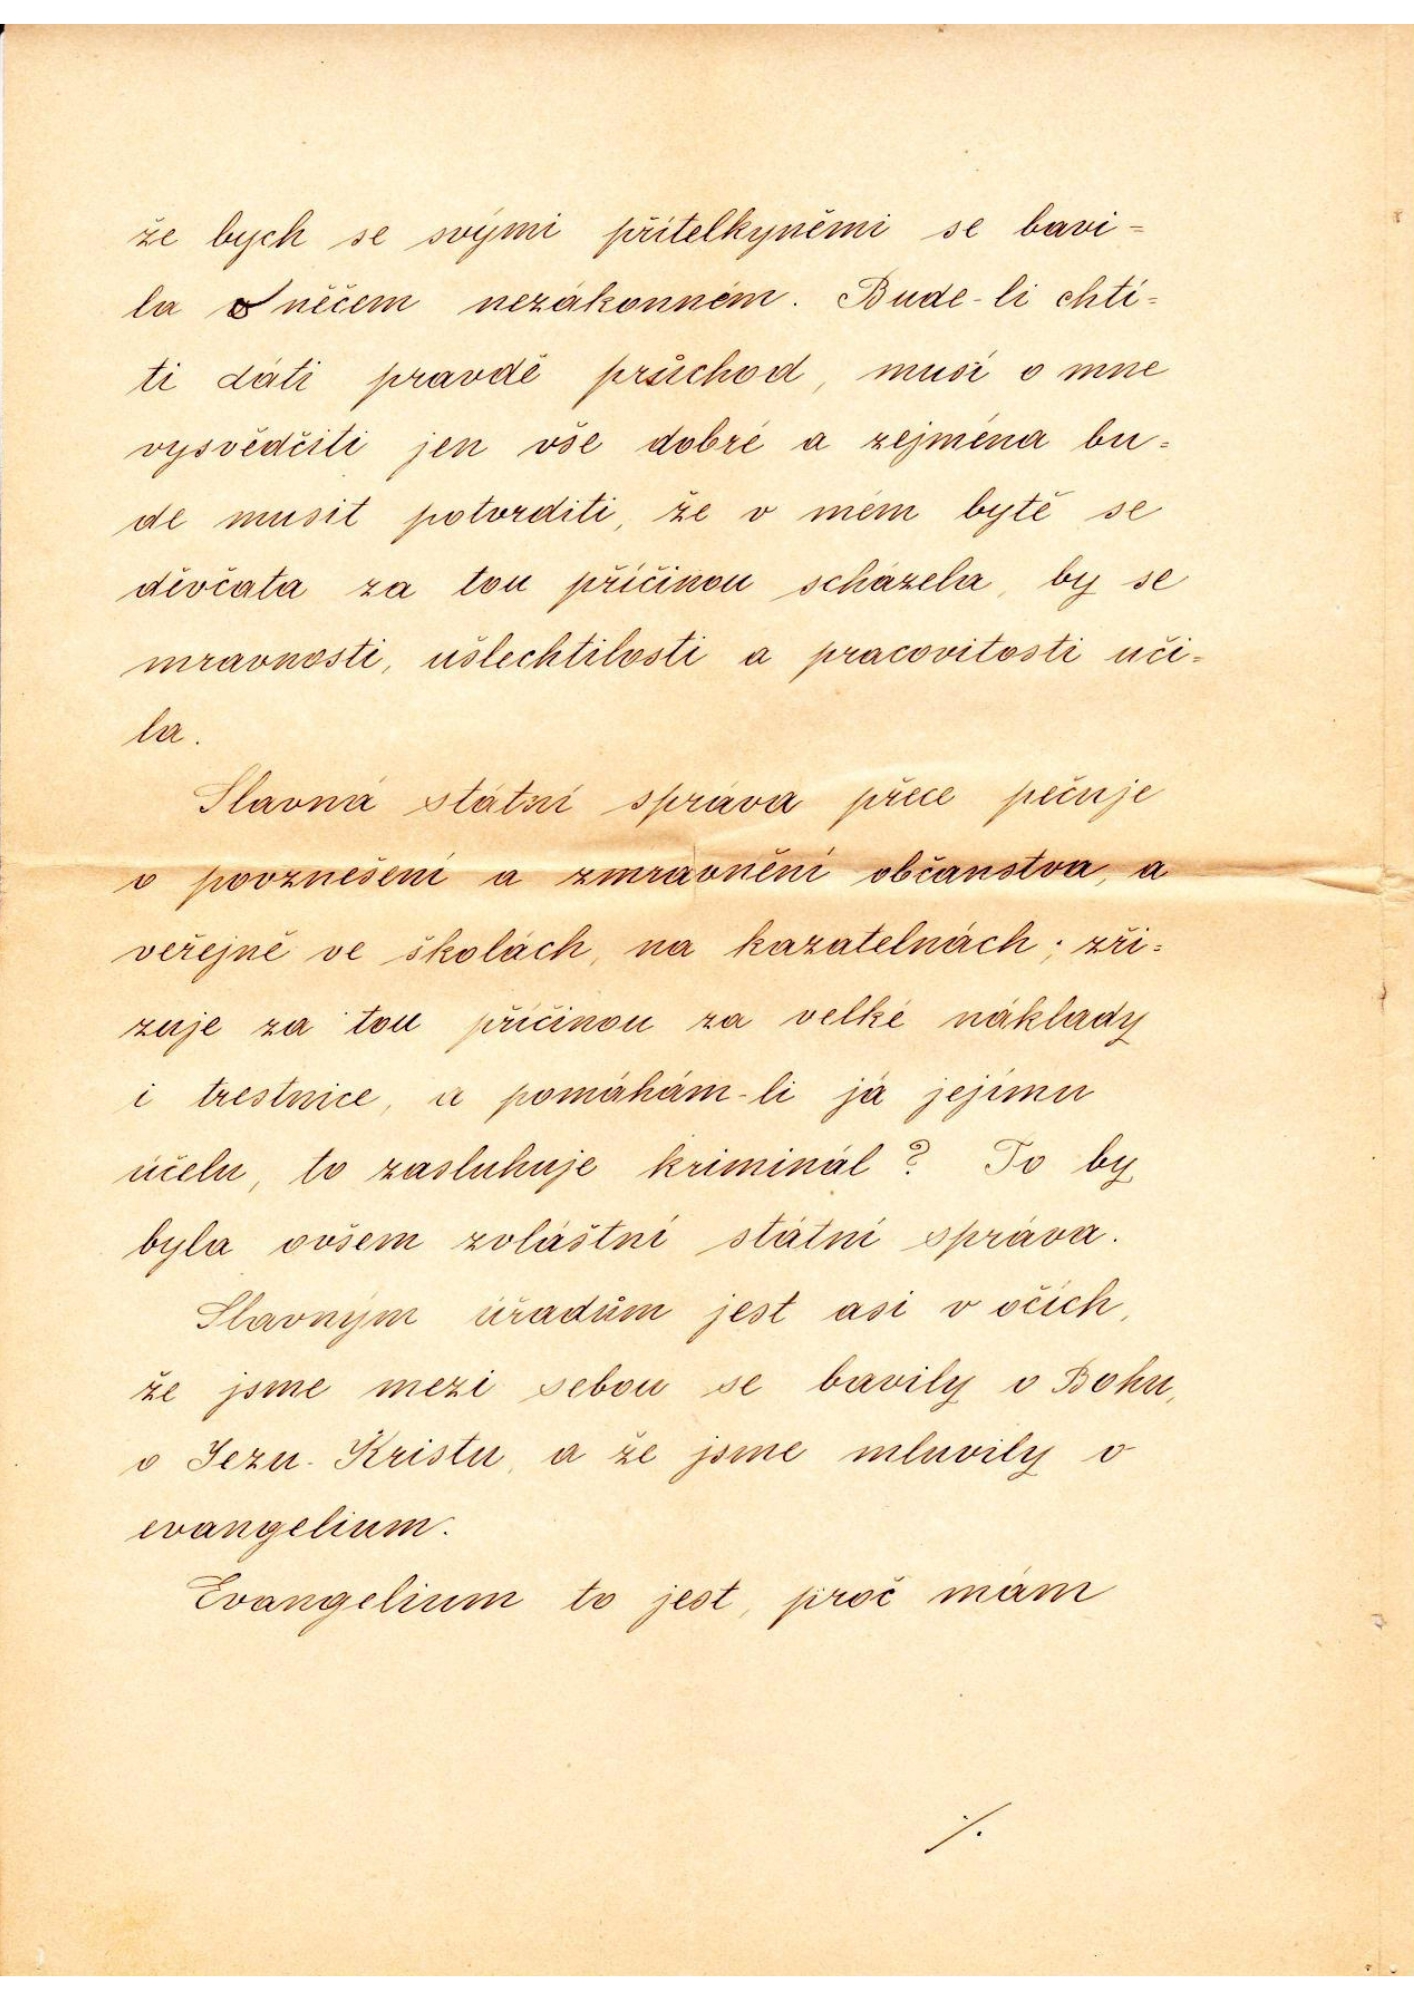 že bych se svými přítelkyněmi se bavi=
la o něčem nezákonném. Bude-li chtí=
ti dáti pravdě průchod, musí o mne
vysvědčiti jen vše dobré a zejména bu=
de musit potvrditi, že v mém bytě se
děvčata za tou příčinou scházela, by se
mravnosti, ušlechtilosti a pracovitosti uči=
la.
Slavná státní správa přece pečuje
o povznešení a zmravnění občanstva, a
veřejně ve školách, na kazatelnách; zři=
zuje za tou příčinou za velké náklady
i trestnice, a pomáhám-li já jejímu
účelu, to zasluhuje kriminál? To by
byla ovšem zvláštní státní správa.
Slavným úřadům jest asi v očích,
že jsme mezi sebou se bavily o Bohu,
o Jezu-Kristu, a že jsme mluvily o
evangelium.
Evangelium to jest, proč mám
./.